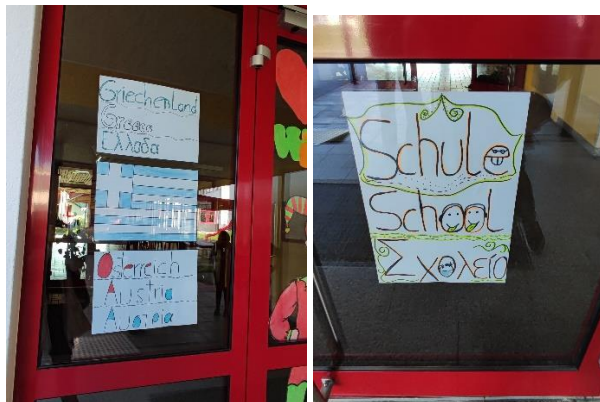 Griechenland
Greece
Ελλάδα
Österreich
Austria
Αυστρία
Schule
School
Σχολείο